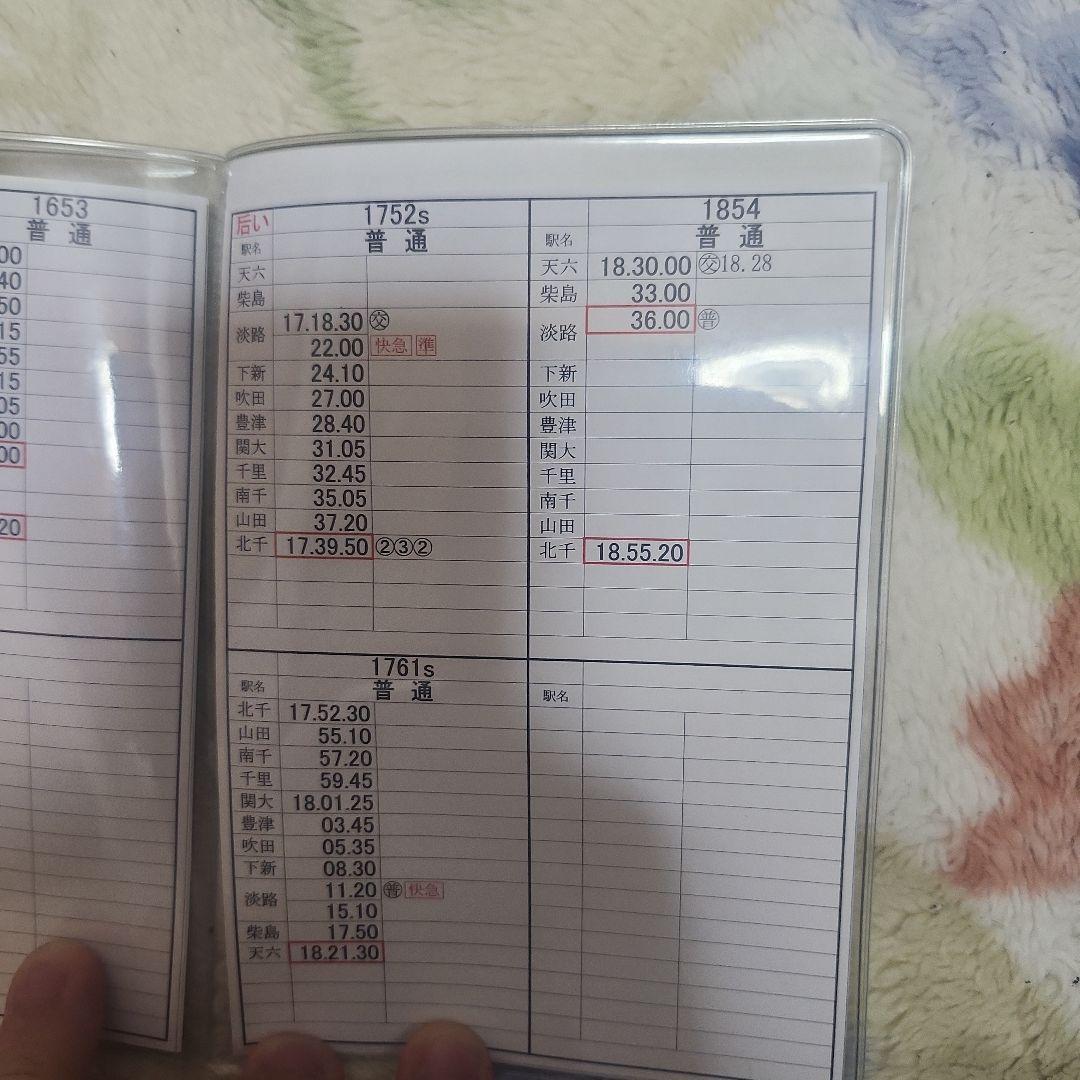 1653
普通
00
40
50
15
55
15
05
00
00
20
后い 1752s
駅名 普通
天六
柴島
淡路 17.18.30 ㊋
22.00 快急 準
下新 24.10
吹田 27.00
豊津 28.40
関大 31.05
千里 32.45
南千 35.05
山田 37.20
北千 17.39.50 ②③②
1854
駅名 普通
天六 18.30.00 交18.28
柴島 33.00
淡路 36.00 普
下新
吹田
豊津
関大
千里
南千
山田
北千 18.55.20
1761s
駅名 普通
北千 17.52.30
山田 55.10
南千 57.20
千里 59.45
関大 18.01.25
豊津 03.45
吹田 05.35
下新 08.30
淡路 11.20 普 快急
15.10
柴島 17.50
天六 18.21.30
駅名